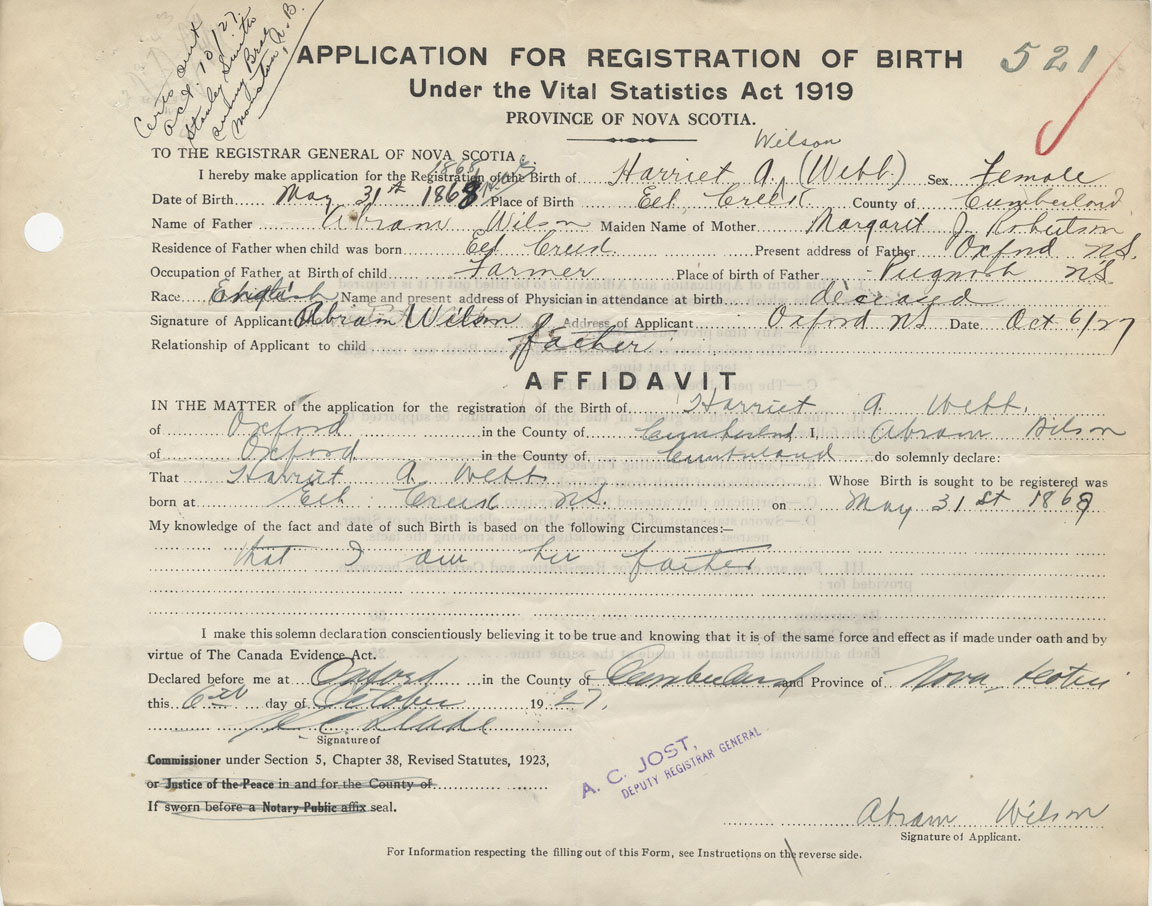 Oct. 10/27.
APPLICATION FOR REGISTRATION OF BIRTH 521
Under the Vital Statistics Act 1919
PROVINCE OF NOVA SCOTIA.
Wilson
TO THE REGISTRAR GENERAL OF NOVA SCOTIA
1868
I hereby make application for the Registration of the Birth of Harriet A. (Webb) Sex Female
Date of Birth May 31st 1868 Place of Birth Eel Creek County of Cumberland
Name of Father Abram Wilson Maiden Name of Mother Margaret J. Robertson
Residence of Father when child was born Eel Creek Present address of Father Oxford NS.
Occupation of Father at Birth of child Farmer Place of birth of Father Pugwash NS
Race English Name and present address of Physician in attendance at birth deceased
Signature of Applicant Abram Wilson Address of Applicant Oxford NS Date Oct 6/27
Relationship of Applicant to child father
AFFIDAVIT
IN THE MATTER of the application for the registration of the Birth of Harriet A. Webb.
of Oxford in the County of Cumberland I, Abram Wilson
of Oxford in the County of Cumberland do solemnly declare:
That Harriet A Webb Whose Birth is sought to be registered was
born at Eel Creek NS. on May 31st 1868
My knowledge of the fact and date of such Birth is based on the following Circumstances:—
that I am her father
I make this solemn declaration conscientiously believing it to be true and knowing that it is of the same force and effect as if made under oath and by
virtue of The Canada Evidence Act.
Declared before me at Oxford in the County of Cumberland and Province of Nova Scotia
this 6th day of October 1927.
Signature of
Commissioner under Section 5, Chapter 38, Revised Statutes, 1923,
or Justice of the Peace in and for the County of
If sworn before a Notary Public affix seal.
A. C. JOST,
DEPUTY REGISTRAR GENERAL
Abram Wilson
Signature of Applicant.
For Information respecting the filling out of this Form, see Instructions on the reverse side.